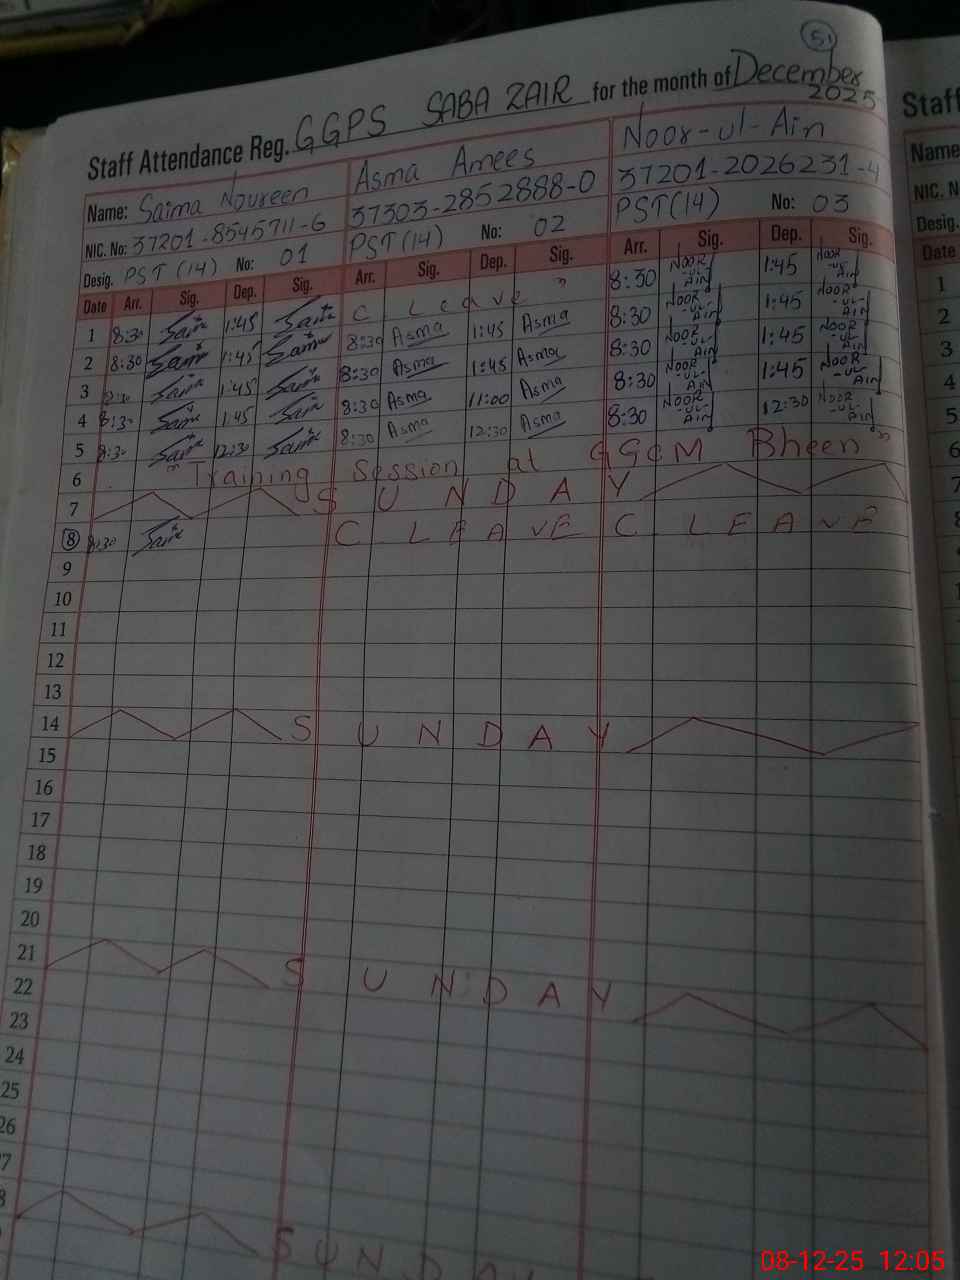 51
Staff Attendance Reg. GGPS SABA ZAIR for the month of December 2025
Name: Saima Noureen Asma Amees Noor-ul-Ain
NIC. No: 37201-8545711-6 37303-2852888-0 37201-2026231-4
Desig. PST (14) No: 01 PST (14) No: 02 PST (14) No: 03
Date Arr. Sig. Dep. Sig. Arr. Sig. Dep. Sig. Arr. Sig. Dep. Sig.
1 8:30 Saim 1:45 Saim C Leave" 8:30 NOOR -ul- Ain 1:45 NOOR -ul- Ain
2 8:30 Saim 1:45 Saim 8:30 Asma 1:45 Asma 8:30 NOOR -UL- Ain 1:45 NOOR -UL- Ain
3 8:30 Saim 1:45 Saim 8:30 Asma 1:45 Asma 8:30 NOOR -UL- Ain 1:45 NOOR -UL- Ain
4 8:30 Saim 1:45 Saim 8:30 Asma 11:00 Asma 8:30 NOOR -UL- Ain 1:45 NOOR -UL- Ain
5 8:30 Saim 12:30 Saim 8:30 Asma 12:30 Asma 8:30 NOOR -UL- Ain 12:30 NOOR -UL- Ain
6 " Training Session at GGCM Bheen"
7 SUNDAY
8 8:30 Saim C LEAVE C LEAVE
9
10
11
12
13
14 SUNDAY
15
16
17
18
19
20
21 SUNDAY
22
23
24
25
26
27
28 SUNDAY
Staff
Name
NIC. N
Desig.
Date
1
2
3
4
5
6
7
8
08-12-25 12:05